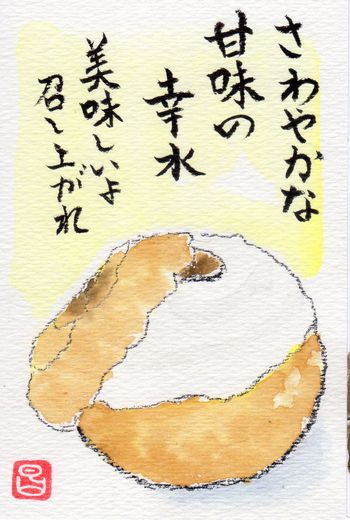 さわやかな
甘味の
幸水
美味しいよ
召し上がれ